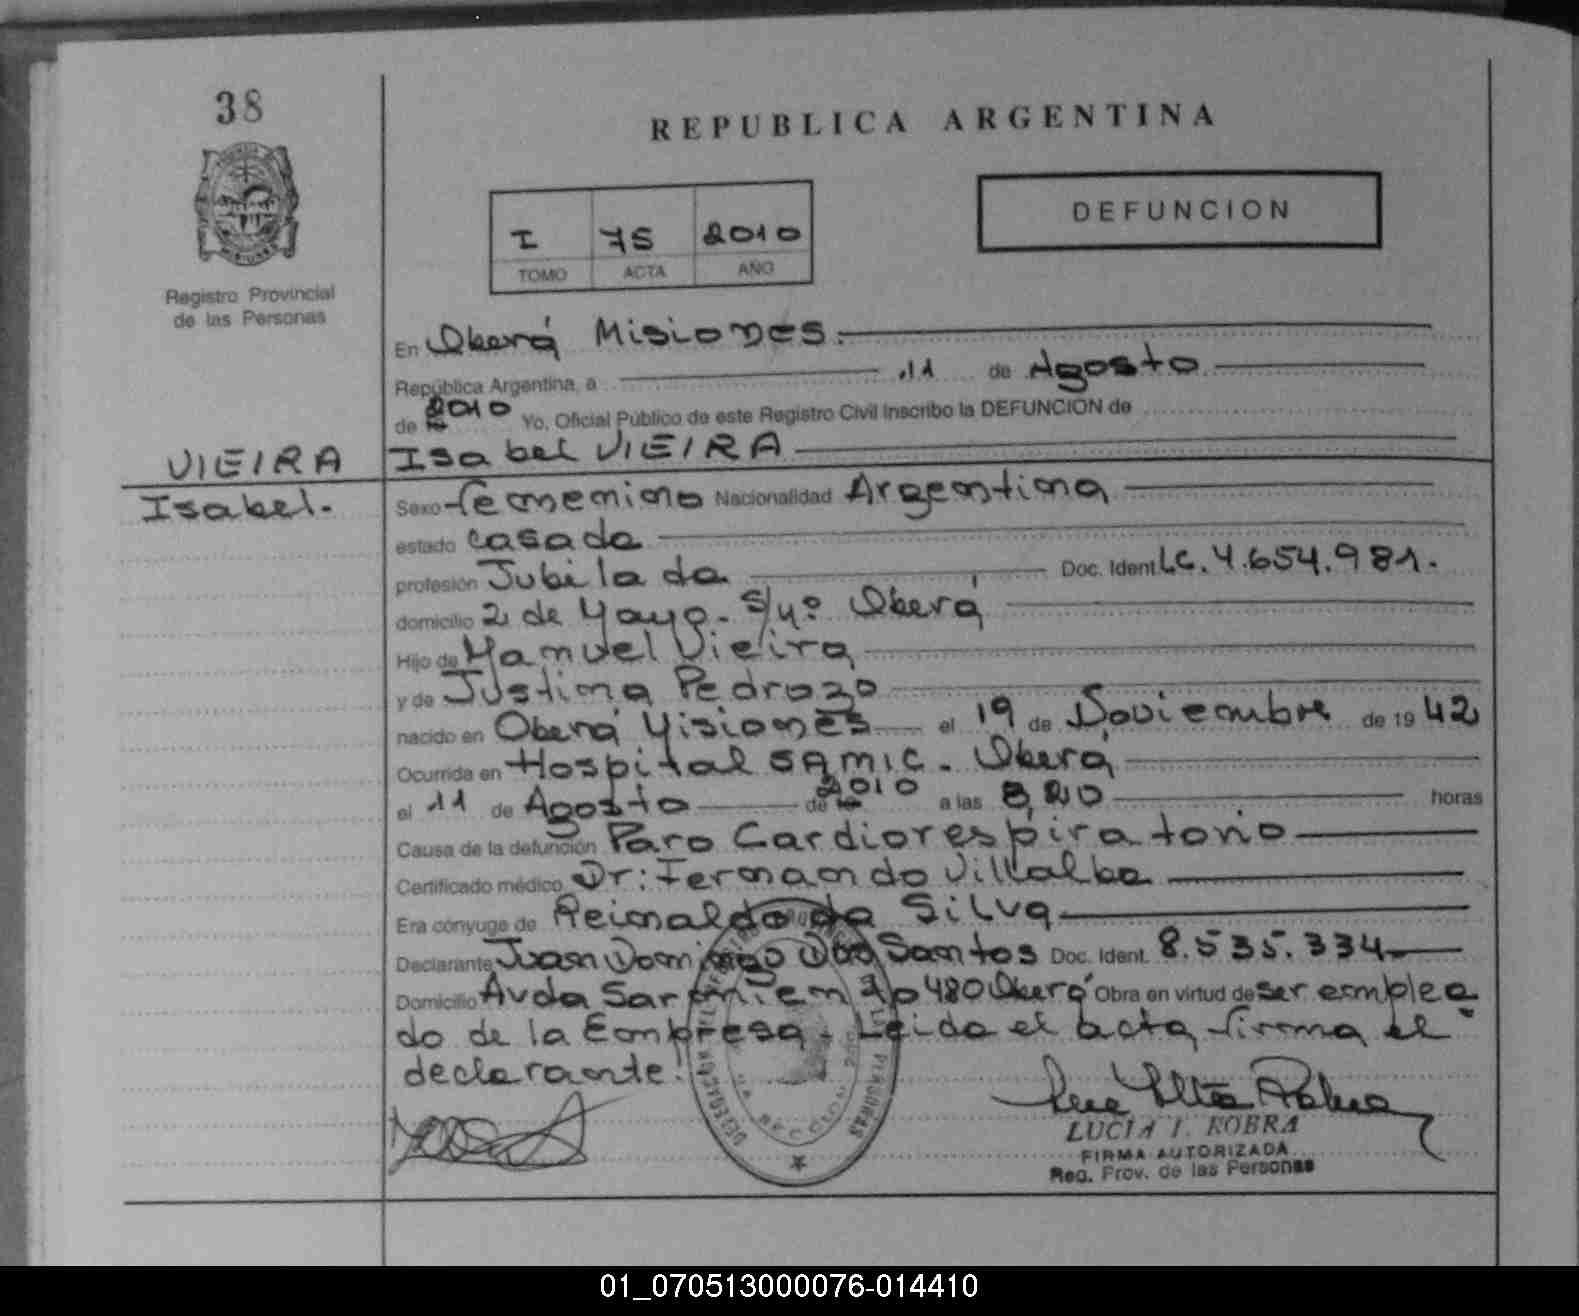 38
REPUBLICA ARGENTINA
DEFUNCION
I 75 2010
TOMO ACTA AÑO
Registro Provincial
de las Personas
En Oberá Misiones.
República Argentina, a 11 de Agosto
de 2010 Yo, Oficial Público de este Registro Civil Inscribo la DEFUNCION de
VIEIRA Isabel VIEIRA
Isabel.
Sexo femenino Nacionalidad Argentina
estado casada
profesión Jubilada Doc. Ident. LC. 4.654.981.
domicilio 2 de Mayo. S/Nº Oberá
Hijo de Manuel Vieira
y de Justina Pedrozo
nacido en Oberá Misiones el 19 de Noviembre de 19 42
Ocurrida en Hospital SAMIC. Oberá
el 11 de Agosto de 2010 a las 8,20 horas
Causa de la defunción Paro Cardiorespiratorio
Certificado médico Dr: Fernando Villalba
Era cónyuge de Reinaldo da Silva
Declarante Juan Domingo Dos Santos Doc. Ident. 8.535.334
Domicilio Avda Sarmiento 480 Oberá Obra en virtud de ser emplea
do de la Empresa. Leida el acta, firma el
declarante!
LUCIA I. ROBRA
FIRMA AUTORIZADA
Reg. Prov. de las Personas
01_070513000076-014410